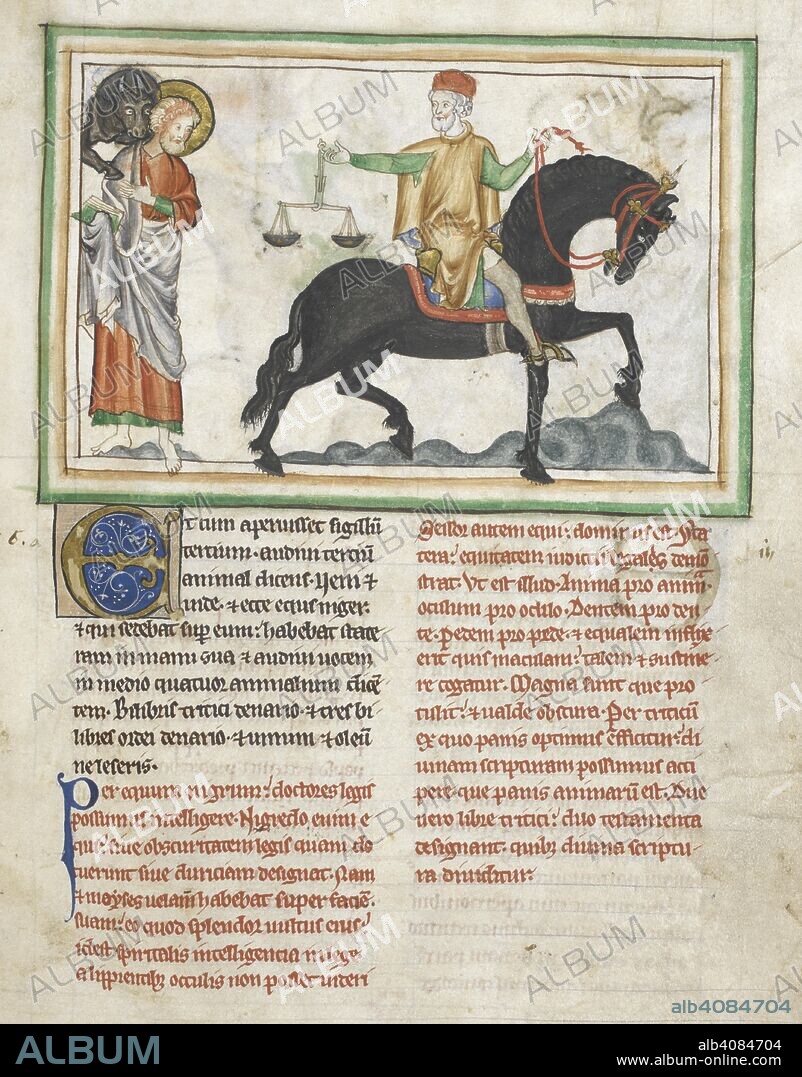 Et cum aperuisset sigillũ
tercium. audiui terciũ
animal dicens. Veni &
uide. & ecce equs niger.
& qui sedebat sup eum: habebat state
ram in manu sua & audiui uocem
in medio quatuor animalium dicẽ
tem. Bilibris tritici denario. & tres bi
libres ordei denario. & uinum & oleũ
ne leseris.
Per equum nigrum: doctores legis
possumus intelligere. Nigredo enim e
qui siue obscuritatem legis quam do
cuerunt siue duriciam designat. Nam
& moyses uelam̃ habebat super faciẽ
suam: eo quod splendor uultus eius
idest spiritalis intelligencia in lege
a lippientibꝫ occulis non posset uideri
Sessor autem equi: dominus est. Sta
tera: equitatem iudicii legales demõ
strat. Vt est illud. Anima pro anim̃.
oculum pro oculo. Dentem pro den
te. Pedem pro pede. & equalem inflix
erit quis maculam: talem & sustine
re cogatur. Magna sunt que pro
tulit: & ualde obscura. Per triticũ
ex quo panis optimus efficitur: di
uinam scripturam possumus acci
pere. que panis animarũ est. Due
uero libre tritici: duo testamenta
designant. quibꝫ diuina scriptu
ra diuiditur.
ALBUM
alb4084704
ALBUM
alb4084704
www.album-online.com